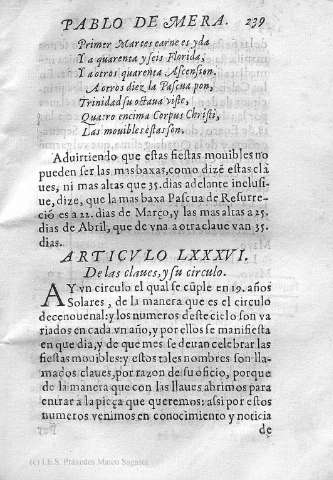 PABLO DE MERA. 239
Primer Martes carne es yda
Y a quarenta y seis Florida,
Y a otros quarenta Ascension.
A otros diez la Pascua pon,
Trinidad su octaua viste,
Quatro encima Corpus Christi,
Las mouibles estas son.
Aduirtiendo que estas fiestas mouibles no
pueden ser las mas baxas, como dize estas cla
ues, ni mas altas que 35. dias adelante inclusi-
ue, dize, que la mas baxa Pascua de Resurre-
ció es a 22. dias de Março, y las mas altas a 25.
dias de Abril, que de vna a otra claue van 35.
dias.
ARTICVLO LXXXVI.
De las claues, y su circulo.
AY vn circulo el qual se cũple en 19. años
Solares, de la manera que es el circulo
decenouenal: y los numeros deste ciclo son va
riados en cada vn año, y por ellos se manifiesta
en que dia, y de que mes se deuan celebrar las
fiestas mouibles: y estos tales nombres son lla-
mados claues, por razon de su oficio, porque
de la manera que con las llaues abrimos para
entrar a la pieça que queremos: assi por estos
numeros venimos en conocimiento y noticia
de
(c) I.E.S. Práxedes Mateo Sagasta